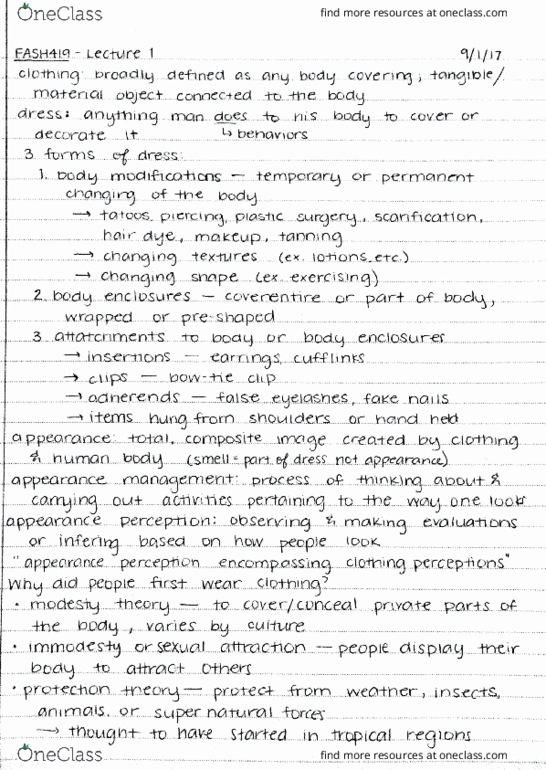 OneClass
find more resources at oneclass.com
FASH419 - Lecture 1 9/1/17
clothing: broadly defined as any body covering, tangible/
material object connected to the body
dress: anything man does to his body to cover or
decorate it ↳ behaviors
3 forms of dress:
1. body modifications — temporary or permanent
changing of the body
→ tatoos, piercing, plastic surgery, scarification,
hair dye, makeup, tanning
→ changing textures (ex. lotions, etc.)
→ changing shape (ex. exercising)
2. body enclosures — cover entire or part of body,
wrapped or pre-shaped
3. attatchments to body or body enclosures
→ insertions — earrings, cufflinks
→ clips — bow-tie clip
→ adherends — false eyelashes, fake nails
→ items hung from shoulders or hand held
appearance: total, composite image created by clothing
& human body (smell = part of dress not appearance)
appearance management: process of thinking about &
carrying out activities pertaining to the way one looks
appearance perception: observing & making evaluations
or infering based on how people look
"appearance perception encompassing clothing perceptions"
Why did people first wear clothing?
• modesty theory — to cover/conceal private parts of
the body, varies by culture
• immodesty or sexual attraction — people display their
body to attract others
• protection theory — protect from weather, insects,
animals, or super natural forces
→ thought to have started in tropical regions
OneClass
find more resources at oneclass.com